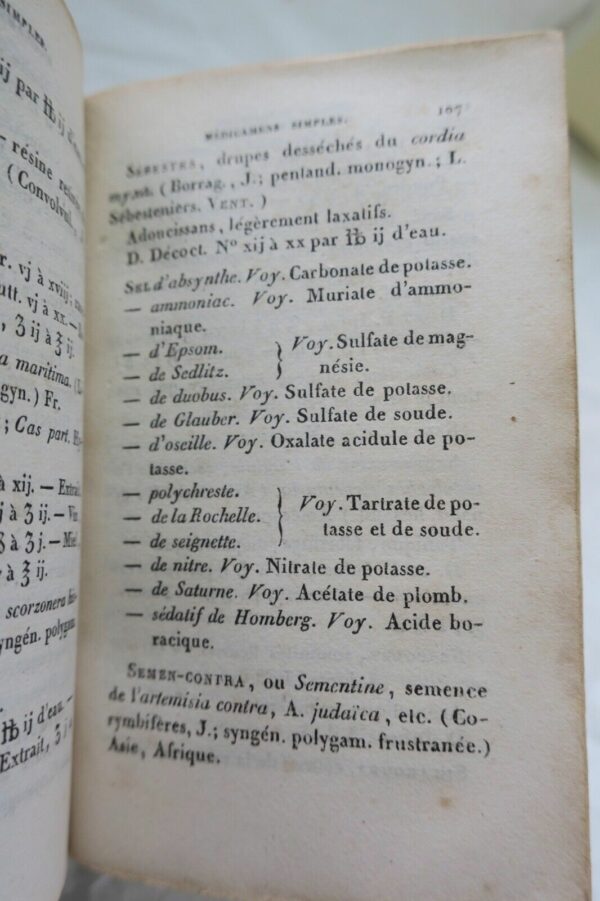 SIMPLES.
ij par ℔ ij d'eau
— résine
(Convolvul.
r. vj à xviij;
utt. vj à xx.—
, ʒ ij à ℥ ij.
a maritima. (L.
gyn.) Fr.
; Cas part.
à xij. — Extrait
j à ʒ ij. — Vin
à ʒ j. — Miel
à ℥ ij.
scorzonera
yngén. polygam.
℔ ij d'eau. —
Extrait, ʒ j
MÉDICAMENS SIMPLES. 167
SÉBESTES, drupes desséchés du cordia
myxa. (Borrag., J.; pentand. monogyn.; L.
Sébesteniers, VENT.)
Adoucissans, légèrement laxatifs.
D. Décoct. N° xij à xx par ℔ ij d'eau.
SEL d'absynthe. Voy. Carbonate de potasse.
— ammoniac. Voy. Muriate d'ammo-
niaque.
— d'Epsom. } Voy. Sulfate de mag-
— de Sedlitz. } nésie.
— de duobus. Voy. Sulfate de potasse.
— de Glauber. Voy. Sulfate de soude.
— d'oseille. Voy. Oxalate acidule de po-
tasse.
— polychreste.
— de la Rochelle. } Voy. Tartrate de po-
— de seignette. } tasse et de soude.
— de nitre. Voy. Nitrate de potasse.
— de Saturne. Voy. Acétate de plomb.
— sédatif de Homberg. Voy. Acide bo-
racique.
SEMEN-CONTRA, ou Sementine, semence
de l'artemisia contra, A. judaïca, etc. (Co-
rymbifères, J.; syngén. polygam. frustranée.)
Asie, Afrique.